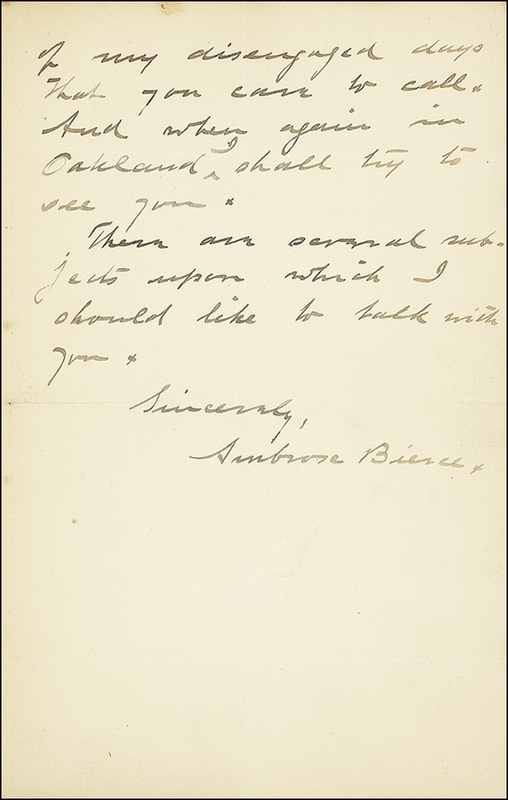 of my disengaged days
that you care to call.
And when again in
Oakland, I shall try to
see you.
There are several sub-
jects upon which I
should like to talk with
you.
Sincerely,
Ambrose Bierce.